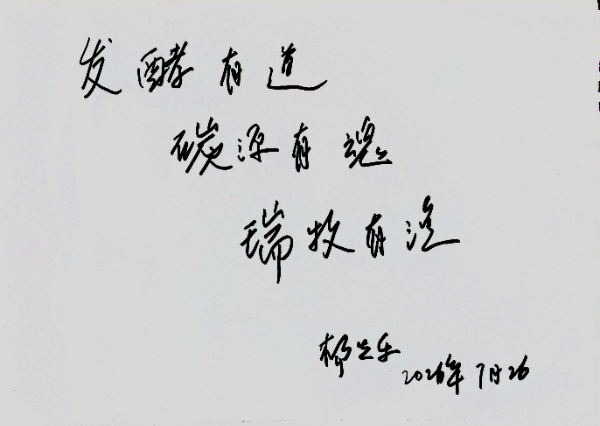 发酵有道
碳源有魂
瑞牧有
2026年7月26